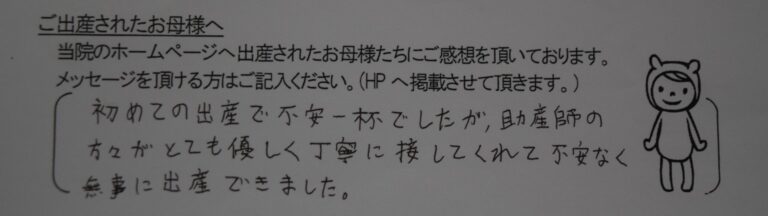 ご出産されたお母様へ
当院のホームページへ出産されたお母様たちにご感想を頂いております。
メッセージを頂ける方はご記入ください。(HPへ掲載させて頂きます。)
初めての出産で不安一杯でしたが、助産師の
方々がとても優しく丁寧に接してくれて不安なく
無事に出産できました。